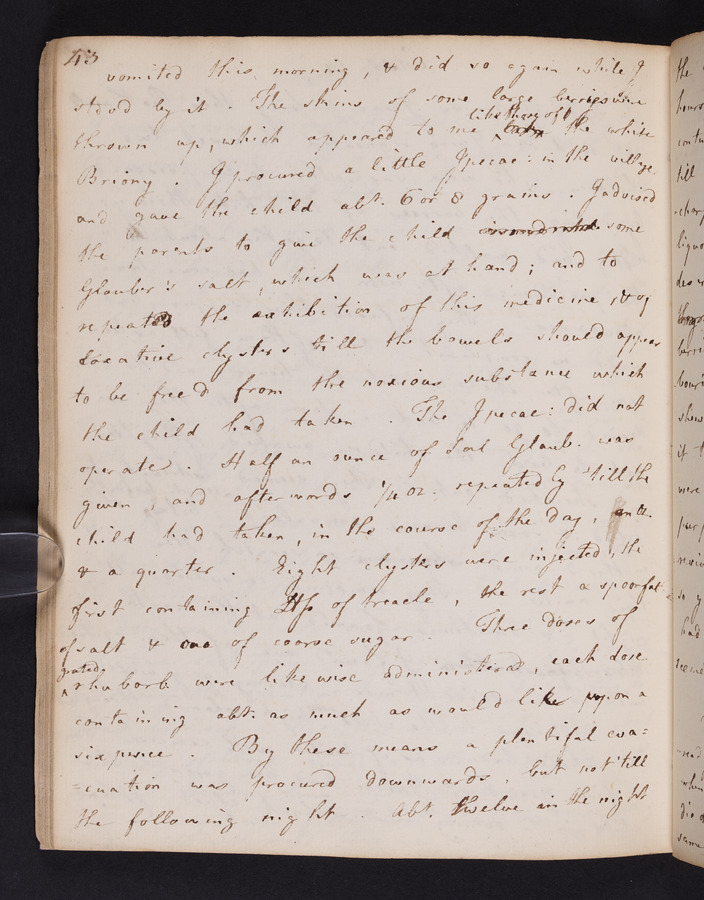 43
vomited this morning, & did so again while I
stood by it. The skins of some large berries were
like those of
thrown up, which appeared to me the white
Briony. I procured a little Ipecac: in the village
and gave the child abt. 6 or 8 grains. I advised
the parents to give the child some
Glauber's salt, which was at hand; and to
repeat the exhibition of this medicine & of
laxative clysters till the bowels should appear
to be freed from the noxious substance which
the child had taken. The Ipecac: did not
operate. Half an ounce of Sal Glaub. was
given, and afterwards 1/4 oz. repeatedly till the
child had taken, in the course of the day,
& a quarter. Eight clysters were injected, the
first containing of treacle, the rest a spoonful
of salt & one of coarse sugar. Three doses of
grated
rhubarb were likewise administered, each dose
containing abt. as much as would lie upon a
sixpence. By these means a plentiful eva=
=cuation was procured downwards, but not till
the following night. Abt. twelve in the night